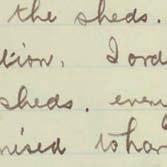 the sheds.
tion. I ord
sheds. even
nised to han